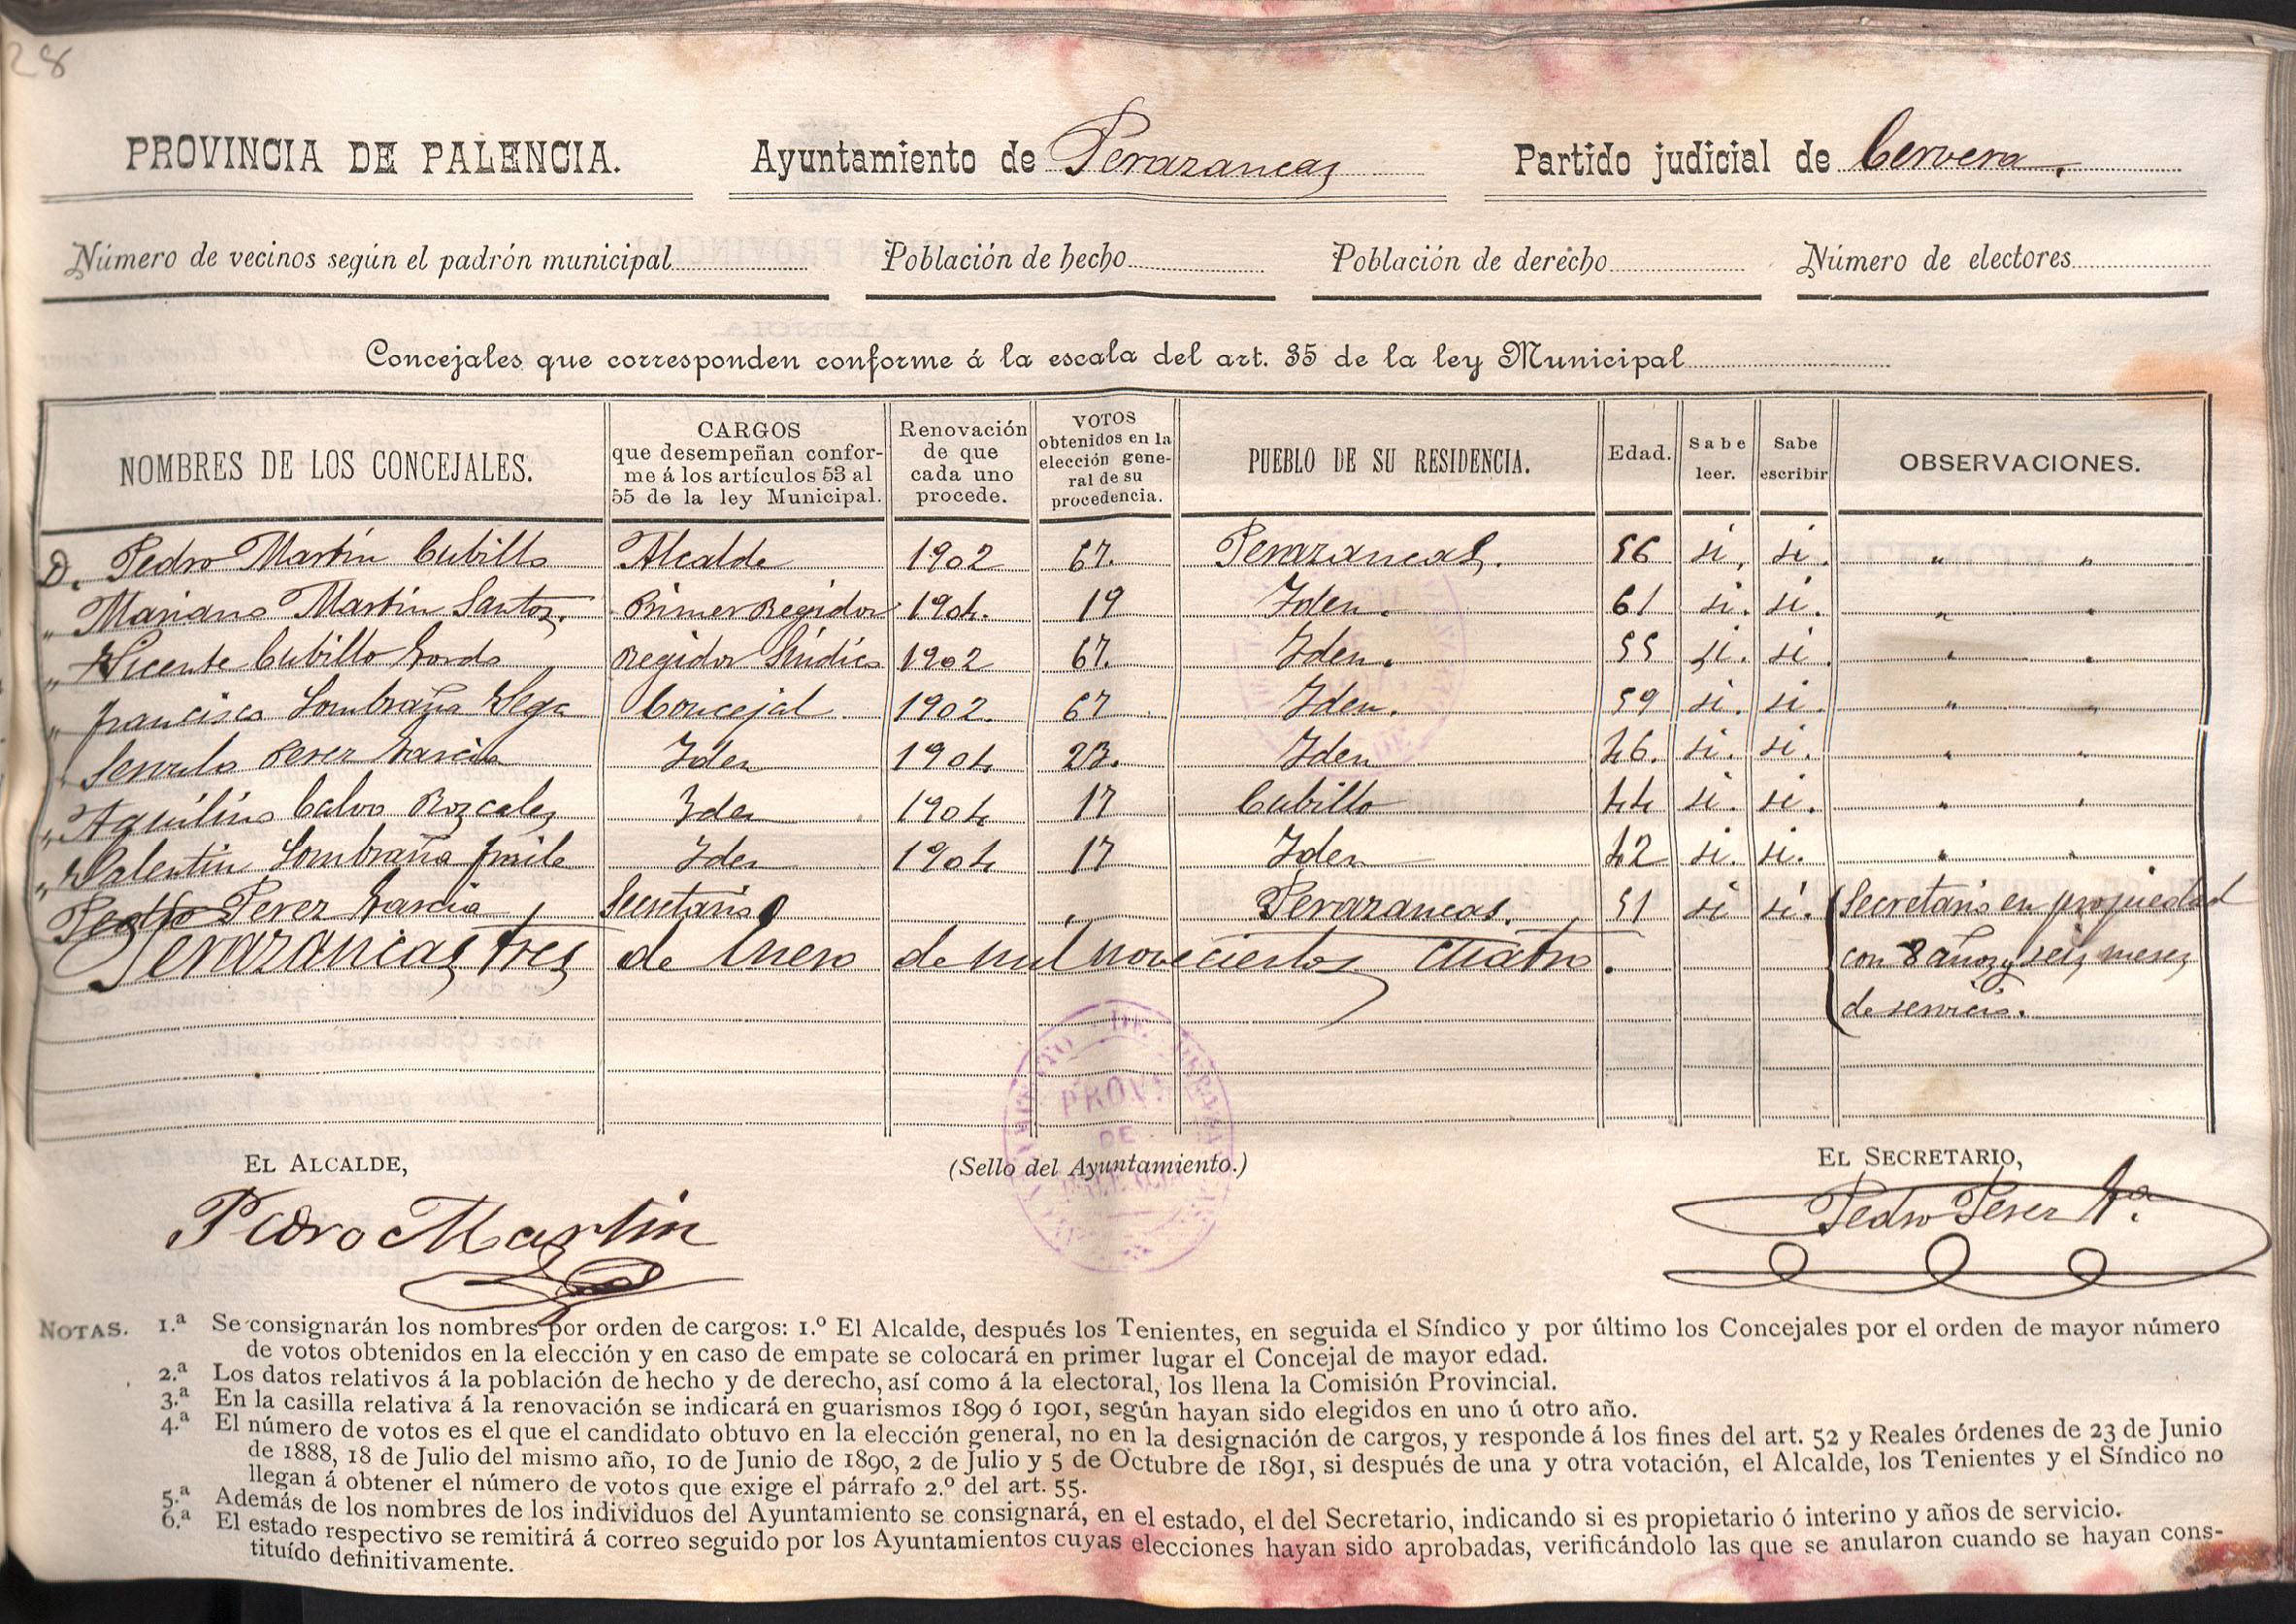 28
PROVINCIA DE PALENCIA. Ayuntamiento de Perazancas Partido judicial de Cervera.
Número de vecinos según el padrón municipal Población de hecho Población de derecho Número de electores
Concejales que corresponden conforme á la escala del art. 35 de la ley Municipal
NOMBRES DE LOS CONCEJALES. CARGOS que desempeñan conforme á los artículos 53 al 55 de la ley Municipal. Renovación de que cada uno procede. VOTOS obtenidos en la elección general de su procedencia. PUEBLO DE SU RESIDENCIA. Edad. Sabe leer. Sabe escribir OBSERVACIONES.
D. Pedro Martín Cubillo Alcalde 1902 67. Perazancas. 56 si, si. " "
" Mariano Martín Santos. Primer Regidor 1904. 19 Iden. 61 si. si. " "
" Vicente Cubillo Gordo Regidor Síndico 1902 67. Iden. 55 si. si. " "
" Francisco Lombraña Vega Concejal 1902. 67 Iden. 59 si. si. " "
" Servulo Perez Garcia Iden 1904 23. Iden 46. si. si. " "
" Aquilino Calvo Iden 1904 17 Cubillo 44 si. si. " "
" Valentin Lombraña Fraile Iden 1904 17 Iden 42 si. si. " "
Pedro Perez Garcia Secretario Perazancas. 51 si si. Secretario en propiedad
Perazancas tres de Enero de mil novecientos cuatro. con 8 años y seis meses
de servicio.
EL ALCALDE, (Sello del Ayuntamiento.) EL SECRETARIO,
PROV.
DE
Pedro Martin Pedro Perez Gª.
NOTAS. 1.ª Se consignarán los nombres por orden de cargos: 1.º El Alcalde, después los Tenientes, en seguida el Síndico y por último los Concejales por el orden de mayor número
de votos obtenidos en la elección y en caso de empate se colocará en primer lugar el Concejal de mayor edad.
2.ª Los datos relativos á la población de hecho y de derecho, así como á la electoral, los llena la Comisión Provincial.
3.ª En la casilla relativa á la renovación se indicará en guarismos 1899 ó 1901, según hayan sido elegidos en uno ú otro año.
4.ª El número de votos es el que el candidato obtuvo en la elección general, no en la designación de cargos, y responde á los fines del art. 52 y Reales órdenes de 23 de Junio
de 1888, 18 de Julio del mismo año, 10 de Junio de 1890, 2 de Julio y 5 de Octubre de 1891, si después de una y otra votación, el Alcalde, los Tenientes y el Síndico no
llegan á obtener el número de votos que exige el párrafo 2.º del art. 55.
5.ª Además de los nombres de los individuos del Ayuntamiento se consignará, en el estado, el del Secretario, indicando si es propietario ó interino y años de servicio.
6.ª El estado respectivo se remitirá á correo seguido por los Ayuntamientos cuyas elecciones hayan sido aprobadas, verificándolo las que se anularon cuando se hayan cons-
tituído definitivamente.